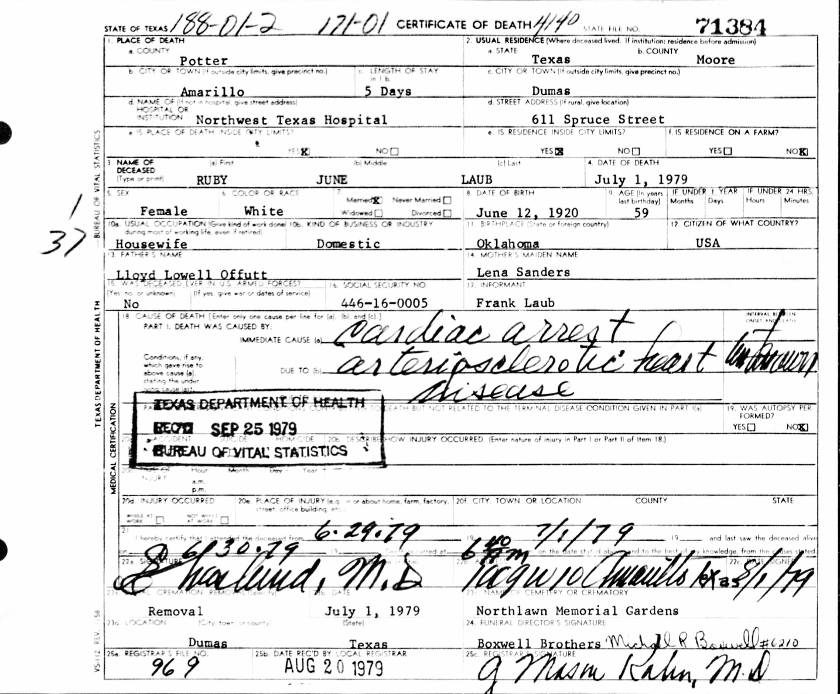 188-01-2 171-01 4140
STATE OF TEXAS CERTIFICATE OF DEATH STATE FILE NO. 71384
1. PLACE OF DEATH 2. USUAL RESIDENCE (Where deceased lived. If institution: residence before admission)
a. COUNTY a. STATE b. COUNTY
Potter Texas Moore
b. CITY OR TOWN (If outside city limits, give precinct no.) c. LENGTH OF STAY in 1 b. c. CITY OR TOWN (If outside city limits, give precinct no.)
Amarillo 5 Days Dumas
d. NAME OF (If not in hospital, give street address) d. STREET ADDRESS (If rural, give location)
HOSPITAL OR
INSTITUTION Northwest Texas Hospital 611 Spruce Street
e. IS PLACE OF DEATH INSIDE CITY LIMITS? e. IS RESIDENCE INSIDE CITY LIMITS? f. IS RESIDENCE ON A FARM?
YES X NO YES X NO YES NO X
3. NAME OF DECEASED (a) First (b) Middle (c) Last 4. DATE OF DEATH
(Type or print) RUBY JUNE LAUB July 1, 1979
5. SEX 6. COLOR OR RACE 7. Married X Never Married 8. DATE OF BIRTH 9. AGE (In years last birthday) IF UNDER 1 YEAR IF UNDER 24 HRS.
Months Days Hours Minutes
Female White Widowed Divorced June 12, 1920 59
10a. USUAL OCCUPATION (Give kind of work done during most of working life, even if retired) 10b. KIND OF BUSINESS OR INDUSTRY 11. BIRTHPLACE (State or foreign country) 12. CITIZEN OF WHAT COUNTRY?
Housewife Domestic Oklahoma USA
13. FATHER'S NAME 14. MOTHER'S MAIDEN NAME
Lloyd Lowell Offutt Lena Sanders
15. WAS DECEASED EVER IN U.S. ARMED FORCES? 16. SOCIAL SECURITY NO. 17. INFORMANT
(Yes, no, or unknown) (If yes, give war or dates of service)
No 446-16-0005 Frank Laub
18. CAUSE OF DEATH [Enter only one cause per line for (a), (b), and (c).] INTERVAL BETWEEN ONSET AND DEATH
PART I. DEATH WAS CAUSED BY:
IMMEDIATE CAUSE (a) cardiac arrest
Conditions, if any, which gave rise to above cause (a), stating the under
DUE TO (b) arteriosclerotic heart disease unknown
DEATH BUT NOT RELATED TO THE TERMINAL DISEASE CONDITION GIVEN IN PART I(a) 19. WAS AUTOPSY PERFORMED?
YES NO X
TEXAS DEPARTMENT OF HEALTH
REC'D SEP 25 1979
BUREAU OF VITAL STATISTICS
ACCIDENT SUICIDE HOMICIDE 20b. DESCRIBE HOW INJURY OCCURRED. (Enter nature of injury in Part I or Part II of Item 18.)
INJURY Hour Month Day Year
a.m.
p.m.
20d. INJURY OCCURRED 20e. PLACE OF INJURY (e.g. in or about home, farm, factory, street, office building, etc.) 20f. CITY, TOWN, OR LOCATION COUNTY STATE
WHILE AT WORK NOT WHILE AT WORK
21. I hereby certify that I attended the deceased from 6-29-79 19 7/1/79 19 and last saw the deceased alive
on 6/30-79 6 40 m on the date stated above, and to the best of my knowledge, from the causes stated.
22a. SIGNATURE M.D Texas 8/1/79
Removal July 1, 1979 23c. NAME OF CEMETERY OR CREMATORY
Northlawn Memorial Gardens
23d. LOCATION (City, town, or county) (State) 24. FUNERAL DIRECTOR'S SIGNATURE
Dumas Texas Boxwell Brothers Michael R Boxwell #6210
25a. REGISTRAR'S FILE NO. 25b. DATE REC'D BY LOCAL REGISTRAR 25c. REGISTRAR'S SIGNATURE
969 AUG 20 1979 g Mason Kahn, M.D
1
37
BUREAU OF VITAL STATISTICS
TEXAS DEPARTMENT OF HEALTH
MEDICAL CERTIFICATION
VS-112 REV.